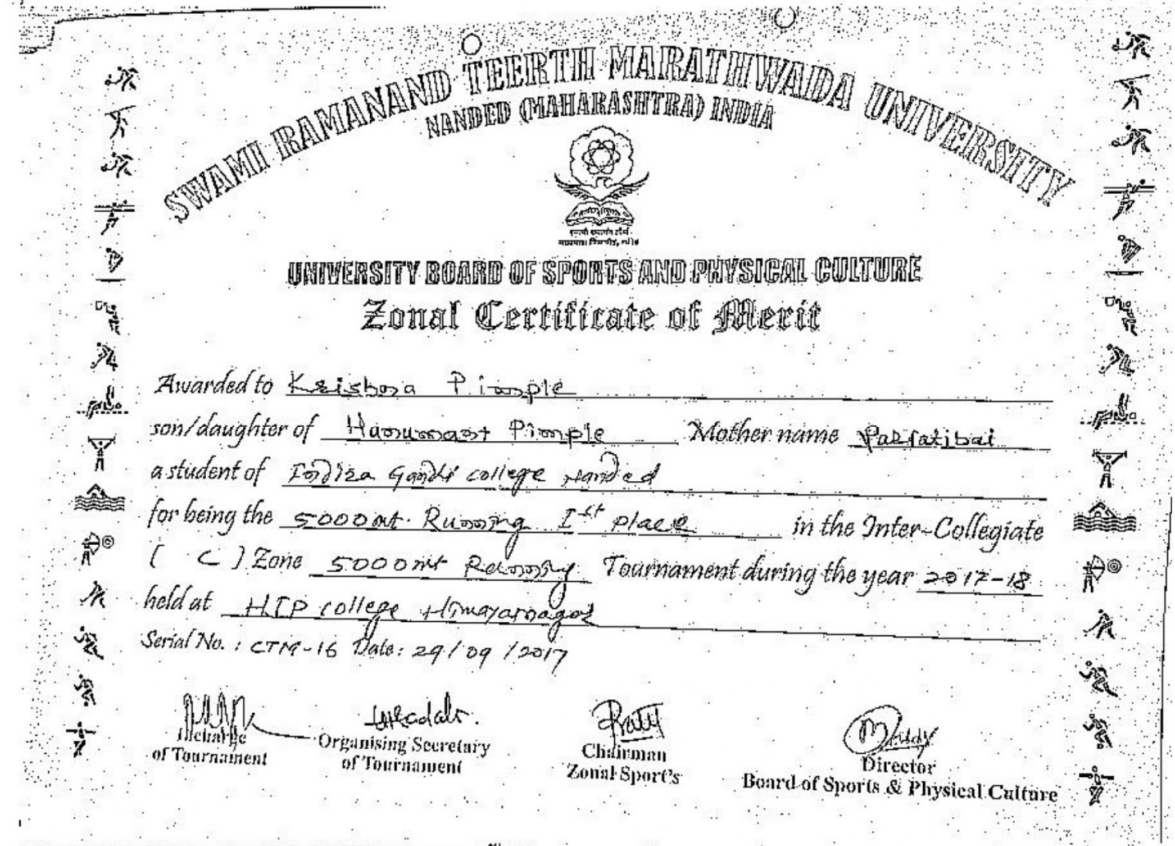 SWAMI RAMANAND TEERTH MARATHWADA UNIVERSITY
NANDED (MAHARASHTRA) INDIA
UNIVERSITY BOARD OF SPORTS AND PHYSICAL CULTURE
Zonal Certificate of Merit
Awarded to Krishna Pimple
son/daughter of Hanumant Pimple Mother name Parvatibai
a student of Indira Gandhi college Nanded
for being the 5000mt. Running Ist place in the Inter-Collegiate
( C ) Zone 5000mt Running Tournament during the year 2017-18
held at HJP college Himayatnagar
Serial No. : CTM-16 Date: 29/09/2017
Incharge
of Tournament
Organising Secretary
of Tournament
Chairman
Zonal Sport's
Director
Board of Sports & Physical Culture